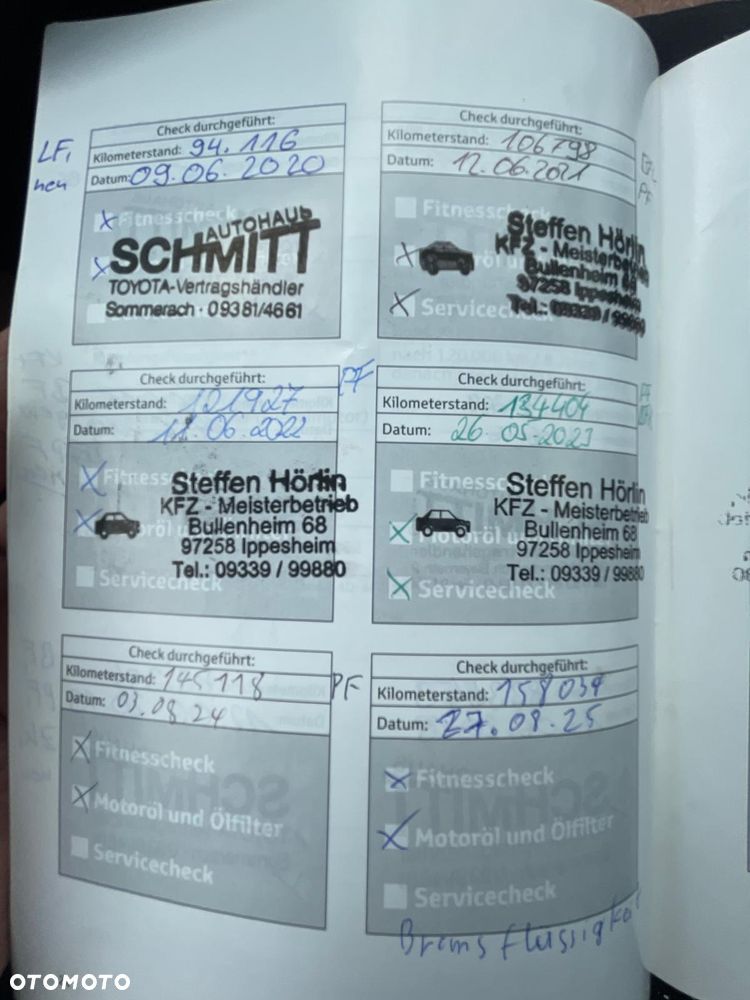 LF,
neu
Check durchgeführt:
Kilometerstand: 94.116
Datum: 09.06.2020
Fitnesscheck
AUTOHAUS
SCHMITT
TOYOTA-Vertragshändler
Sommerach · 09381/4661
Check durchgeführt:
Kilometerstand: 106798
Datum: 12.06.2021
PF
Fitnesscheck
Steffen Hörlin
KFZ - Meisterbetrieb
Bullenheim 68
97258 Ippesheim
Servicecheck
Tel.: 09339 / 99880
Check durchgeführt:
PF
Kilometerstand: 121927
Datum: 11.06.2022
Fitnesscheck
Steffen Hörlin
KFZ - Meisterbetrieb
Bullenheim 68
97258 Ippesheim
Servicecheck
Tel.: 09339 / 99880
Check durchgeführt:
PF
Kilometerstand: 134404
Datum: 26.05.2023
Fitnesscheck
Steffen Hörlin
KFZ - Meisterbetrieb
Motoröl und
Bullenheim 68
97258 Ippesheim
Tel.: 09339 / 99880
Servicecheck
Check durchgeführt:
Kilometerstand: 145118
PF
Datum: 03.08.24
Fitnesscheck
Motoröl und Ölfilter
Servicecheck
Check durchgeführt:
Kilometerstand: 158039
Datum: 27.08.25
Fitnesscheck
Motoröl und Ölfilter
Servicecheck
Bremsflüssigkeit
OTOMOTO